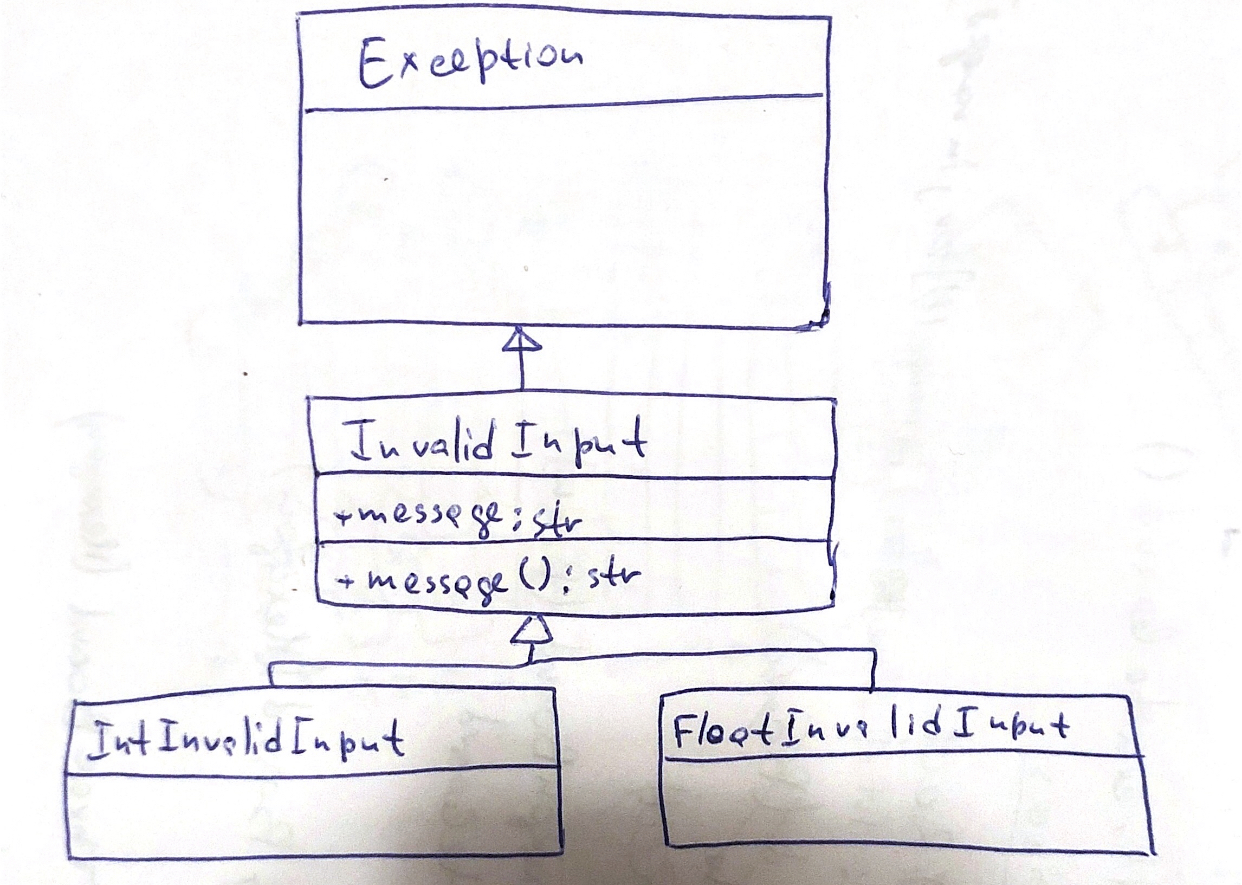 Exception
InvalidInput
+message: str
+message(): str
IntInvalidInput
FloatInvalidInput